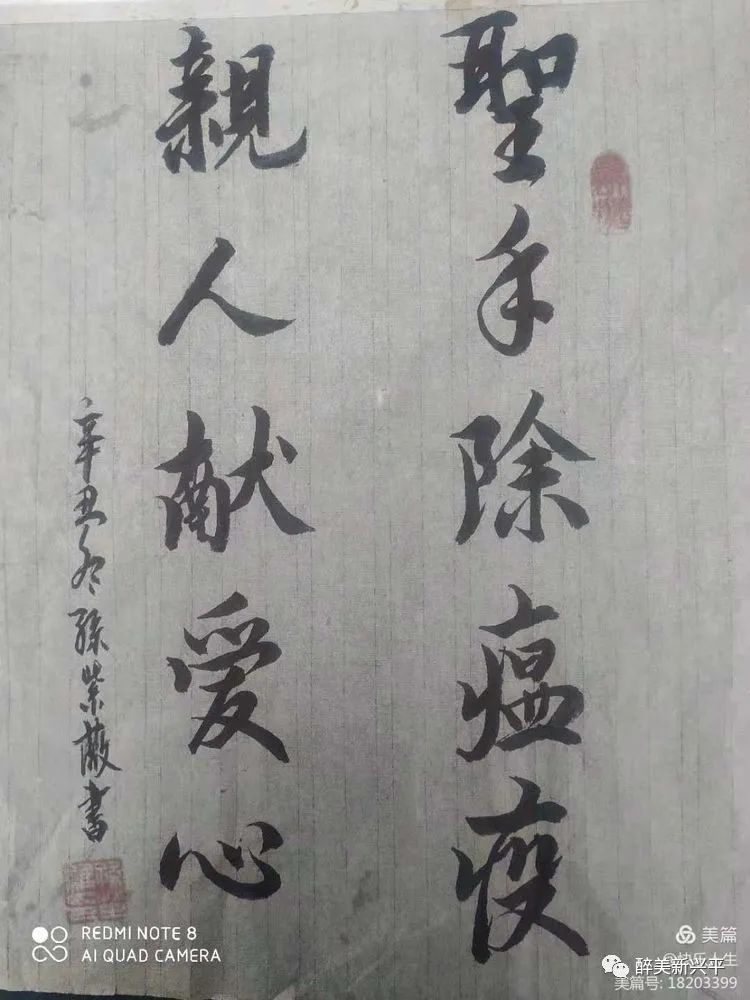 聖手除瘟疫
親人献爱心
辛丑冬孫紫薇書
REDMI NOTE 8
AI QUAD CAMERA
美篇
醉美新兴平
美篇号: 18203399